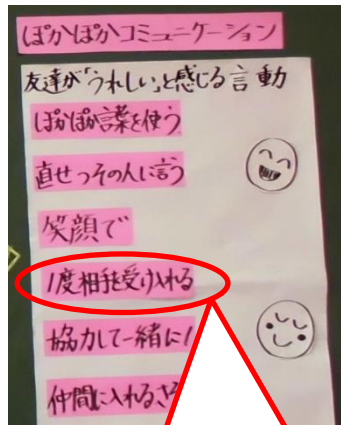 ぽかぽかコミュニケーション
友達が「うれしい」と感じる言動
ぽかぽか言葉を使う
直せつその人に言う
笑顔で
1度相手を受け入れる
協力して一緒に!
仲間に入れる